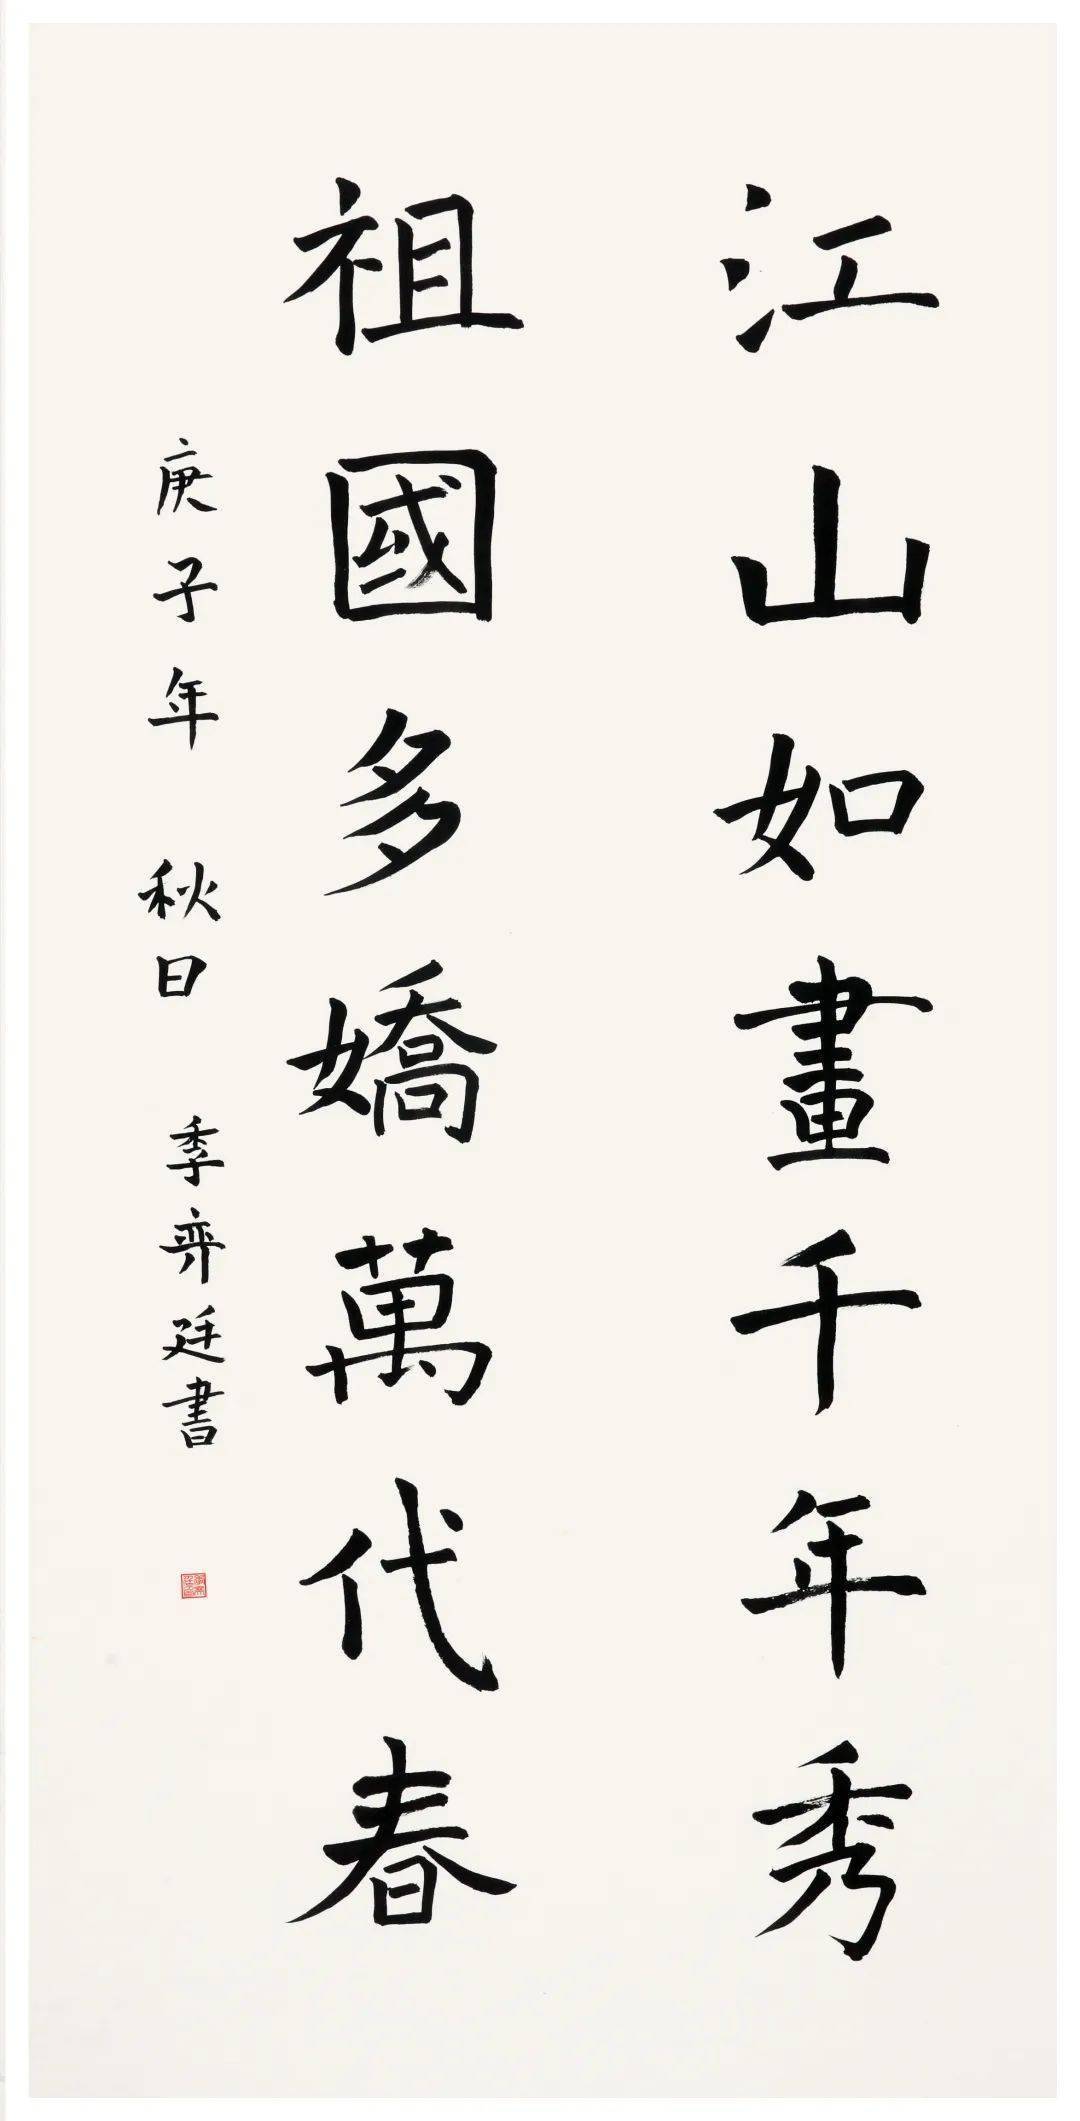 江山如畫千年秀
祖國多嬌萬代春
庚子年 秋日 季弈廷書